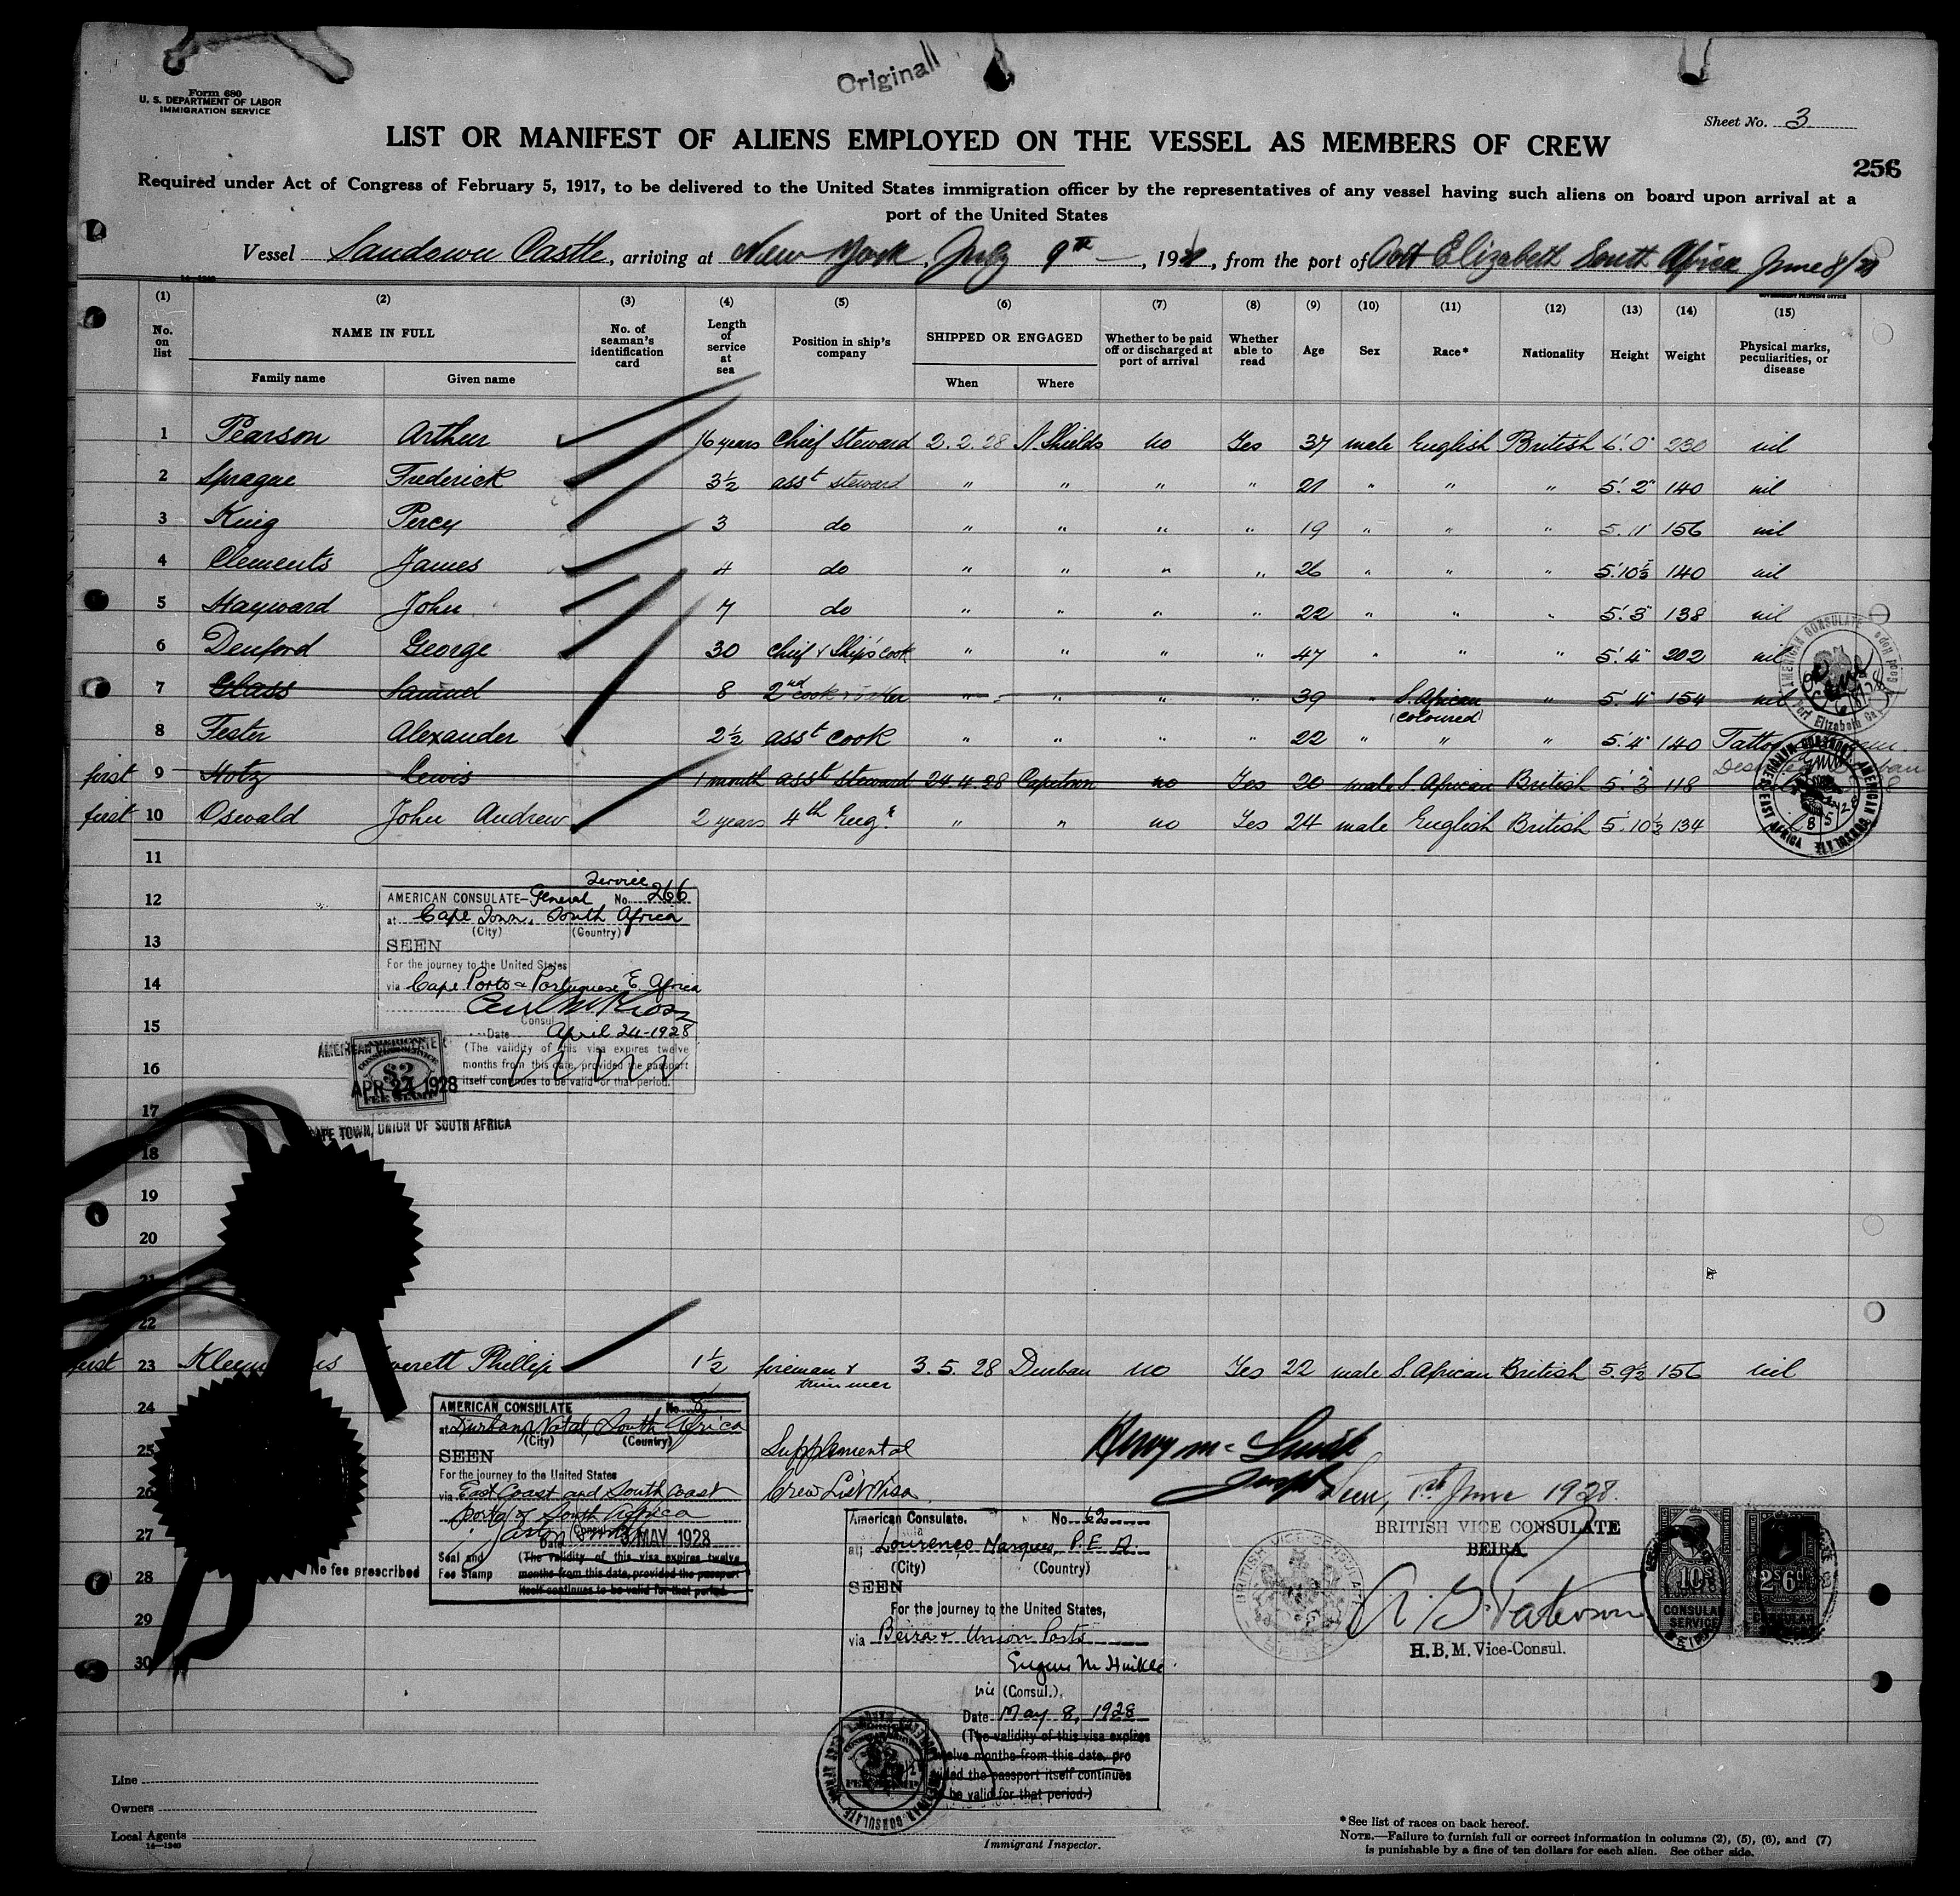 Originall
Form 680
U. S. DEPARTMENT OF LABOR
IMMIGRATION SERVICE
Sheet No. 3
LIST OR MANIFEST OF ALIENS EMPLOYED ON THE VESSEL AS MEMBERS OF CREW
256
Required under Act of Congress of February 5, 1917, to be delivered to the United States immigration officer by the representatives of any vessel having such aliens on board upon arrival at a
port of the United States
Vessel Sandown Castle, arriving at New York, July 9th, 1928, from the port of Port Elizabeth South Africa June 8/28
14-1240
GOVERNMENT PRINTING OFFICE
(1) (2) (3) (4) (5) (6) (7) (8) (9) (10) (11) (12) (13) (14) (15)
No. on list NAME IN FULL No. of seaman's identification card Length of service at sea Position in ship's company SHIPPED OR ENGAGED Whether to be paid off or discharged at port of arrival Whether able to read Age Sex Race* Nationality Height Weight Physical marks, peculiarities, or disease
Family name Given name When Where
1 Pearson Arthur 16 years Chief Steward 2.2.28 N. Shields no Yes 37 male English British 6'.0" 230 nil
2 Sprague Frederick 3½ asst steward " " " " 21 " " " 5'.2" 140 nil
3 King Percy 3 do " " " " 19 " " " 5.11" 156 nil
4 Clements James 4 do " " " " 26 " " " 5'.10½ 140 nil
5 Hayward John 7 do " " " " 22 " " " 5'.3" 138 nil
6 Denford George 30 Chief & Ship's cook " " " " 47 " " " 5'.4" 202 nil
7 Glass Samuel 8 2nd cook " " " " 39 " S. African (coloured) " 5'.4" 154 nil
8 Fester Alexander 2½ asst cook " " " " 22 " " " 5'.4" 140
first 9 Hotz Lewis 1 month asst steward 24.4.28 Capetown no Yes 20 male S. African British 5'.3" 118
first 10 Oswald John Andrew 2 years 4th Engr " " no Yes 24 male English British 5'.10½ 134
11
12
13
14
15
16
17
18
19
20
21
22
AMERICAN CONSULATE-General Service No. 266
at Cape Town, South Africa
(City) (Country)
SEEN
For the journey to the United States
via Cape Ports & Portuguese E. Africa
Consul
Date April 24-1928
(The validity of this visa expires twelve
months from this date, provided the passport
itself continues to be valid for that period.
$2
FEE STAMP
APR 24 1928
CAPE TOWN, UNION OF SOUTH AFRICA
first 23 Everett Phillip 1½ fireman & trimmer 3.5.28 Durban no Yes 22 male S. African British 5.9½ 156 nil
24
25
26
27
28
29
30
AMERICAN CONSULATE No. 8
at Durban, Natal, South Africa
(City) (Country)
SEEN
For the journey to the United States
via East Coast and South Coast
ports of South Africa
Date 3 MAY 1928
Seal and Fee Stamp
(The validity of this visa expires twelve
months from this date, provided the passport
itself continues to be valid for that period.
No fee prescribed
Supplemental
Crew List Visa
American Consulate. No. 62
at Lourenço Marques, P. E. A.
(City) (Country)
SEEN
For the journey to the United States,
via Beira & Union Ports
Eugene M. Hinkle
vice (Consul.)
Date May 8, 1928
(The validity of this visa expires
twelve months from this date, pro
vided the passport itself continues
be valid for that period.)
Seen, 1st June 1928.
BRITISH VICE CONSULATE
BEIRA
H.B.M. Vice-Consul.
10s
CONSULAR SERVICE
2s6d
Line
Owners
Local Agents
14-1240
Immigrant Inspector.
*See list of races on back hereof.
NOTE.—Failure to furnish full or correct information in columns (2), (5), (6), and (7)
is punishable by a fine of ten dollars for each alien. See other side.